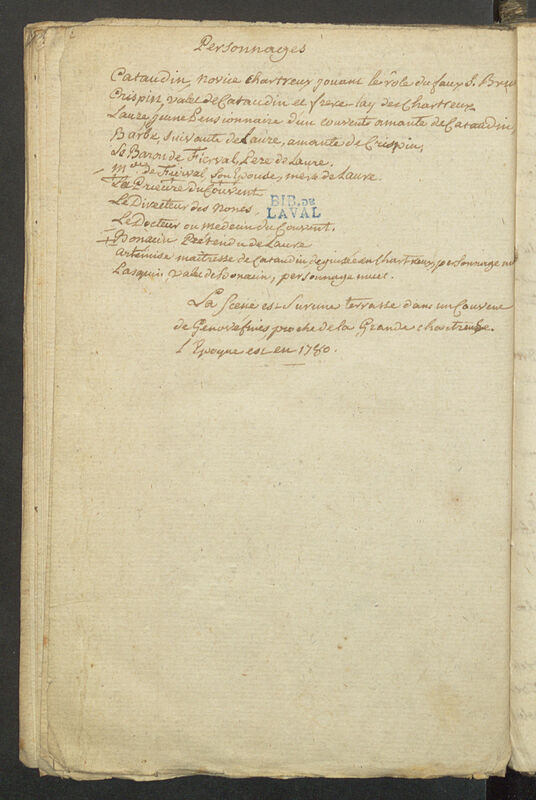 Personnages
Cataudin, novice chartreux jouant le rôle du faux S. Bru
Crispin, valet de Cataudin et frere-lay des Chartreux
Laure, jeune Pensionnaire d'un couvent amante de Cataudin
Barbe, suivante de Laure, amante de Crispin,
Le Baron de Fierval, Pere de Laure.
de Fierval son Epouse, mere de Laure.
La Prieure du Couvent
Le Directeur des Nones,
BIB. DE
LAVAL
Le Docteur ou médecin du Couvent.
Prétendu de Laure
Artémise maitresse de Cataudin deguisée en Chartreux, personnage mu
valet de personnage muet.
La Scene est sur une terrasse dans un Couvent
de Genovéfines, proche de la Grande chartreuse.
l'Epoque est en 1780.